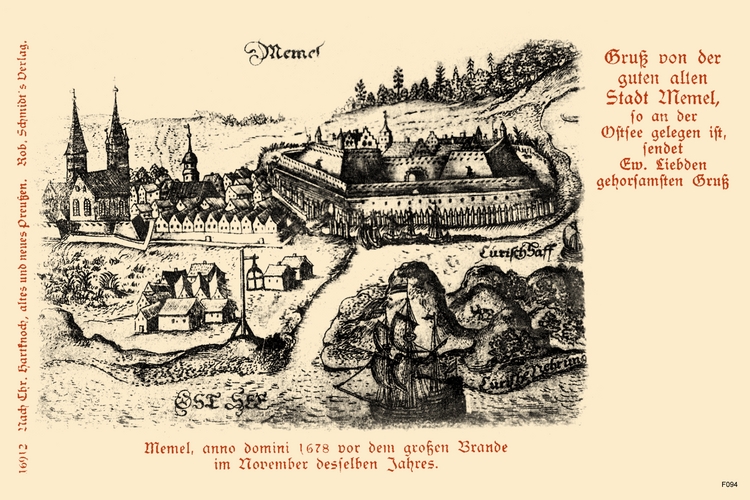 Memel
Gruß von der
guten alten
Stadt Memel,
so an der
Ostsee gelegen ist,
sendet
Ew. Liebden
gehorsamsten Gruß
Curisch Haff
Curisch Nehrung
OST SEE
Memel, anno domini 1678 vor dem großen Brande
im November desselben Jahres.
16912 Nach Chr. Hartknoch, altes und neues Preußen. Rob. Schmidt's Verlag.
F094